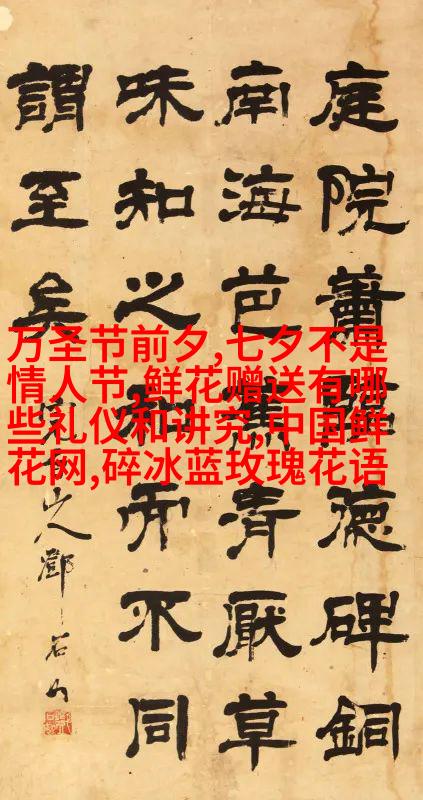 万圣节前夕,七夕不是
情人节,鲜花赠送有哪
些礼仪和讲究,中国鲜
花网,碎冰蓝玫瑰花语
庭院蕭德碑銅
南海芭蕉清厭草
味知之而不同
謂至矣
山人鄧石如